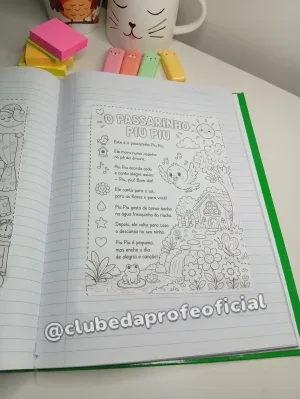 O PASSARINHO
PIU PIU
Este é o passarinho Piu Piu.
Ele mora numa casinha
no pé da árvore.
Piu Piu acorda cedo
e canta alegre assim:
– Piu, piu! Bom dia!
Ele canta para o sol,
para as flores e para você!
Piu Piu gosta de tomar banho
na água fresquinha do riacho.
Depois, ele volta para casa
e descansa no seu ninho.
Piu Piu é pequeno,
mas enche o dia
de alegria e canção!
@clubedaprofeoficial